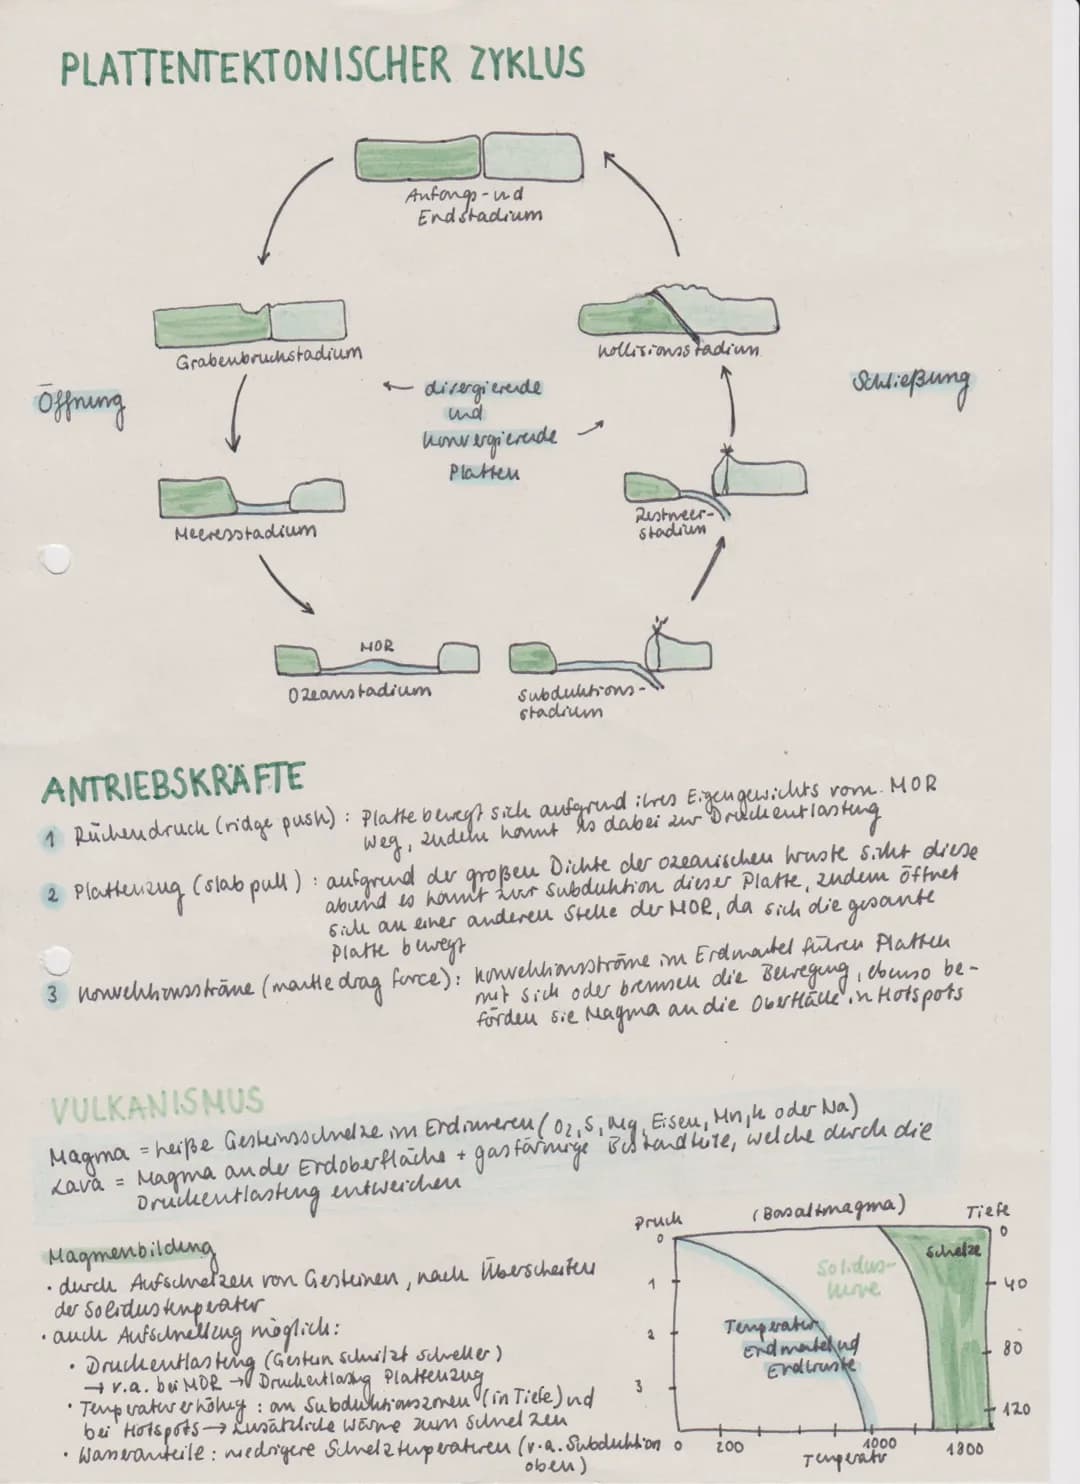 PLATTENTEKTONISCHER ZYKLUS
Anfangs- und
Endstadium
Grabenbruchstadium
Kollisionsstadium
Öffnung
← divergierende
und
konvergierende
Platten
Schließung
Meeresstadium
Restmeer-
stadium
MOR
Ozeanstadium
Subduktions-
stadium
ANTRIEBSKRÄFTE
1 Rückendruck (ridge push): Platte bewegt sich aufgrund ihres Eigengewichts vom MOR
weg, zudem kommt es dabei zur Druckentlastung
2 Plattenzug (slab pull): aufgrund der großen Dichte der ozeanischen Kruste sinkt diese
ab und es kommt zur Subduktion dieser Platte, zudem öffnet
sich an einer anderen Stelle der MOR, da sich die gesamte
Platte bewegt
3 Konvektionsströme (mantle drag force): Konvektionsströme im Erdmantel führen Platten
mit sich oder bremsen die Bewegung, ebenso be-
fördern sie Magma an die Oberfläche in Hotspots
VULKANISMUS
Magma = heiße Gesteinsschmelze im Erdinneren (O2, S, Mg, Eisen, Mn, K oder Na)
Lava = Magma an der Erdoberfläche + gasförmige Bestandteile, welche durch die
Druckentlastung entweichen
Magmenbildung
· durch Aufschmelzen von Gesteinen, nach Überschreiten
der Solidustemperatur
· auch Aufschmelzung möglich:
· Druckentlastung (Gestein schmilzt schneller)
→ v.a. bei MOR → Druckentlastung Plattenzug
· Temperaturerhöhung: an Subduktionszonen (in Tiefe) und
bei Hotspots → zusätzliche Wärme zum Schmelzen
· Wasseranteile: niedrigere Schmelztemperaturen (v.a. Subduktion
oben)
Druck (Basaltmagma) Tiefe
0 0
Schmelze
Solidus-
kurve
1 40
Temperatur
Erdmantel und
Erdkruste
2 80
3 120
0 200 1000 1800
Temperatur